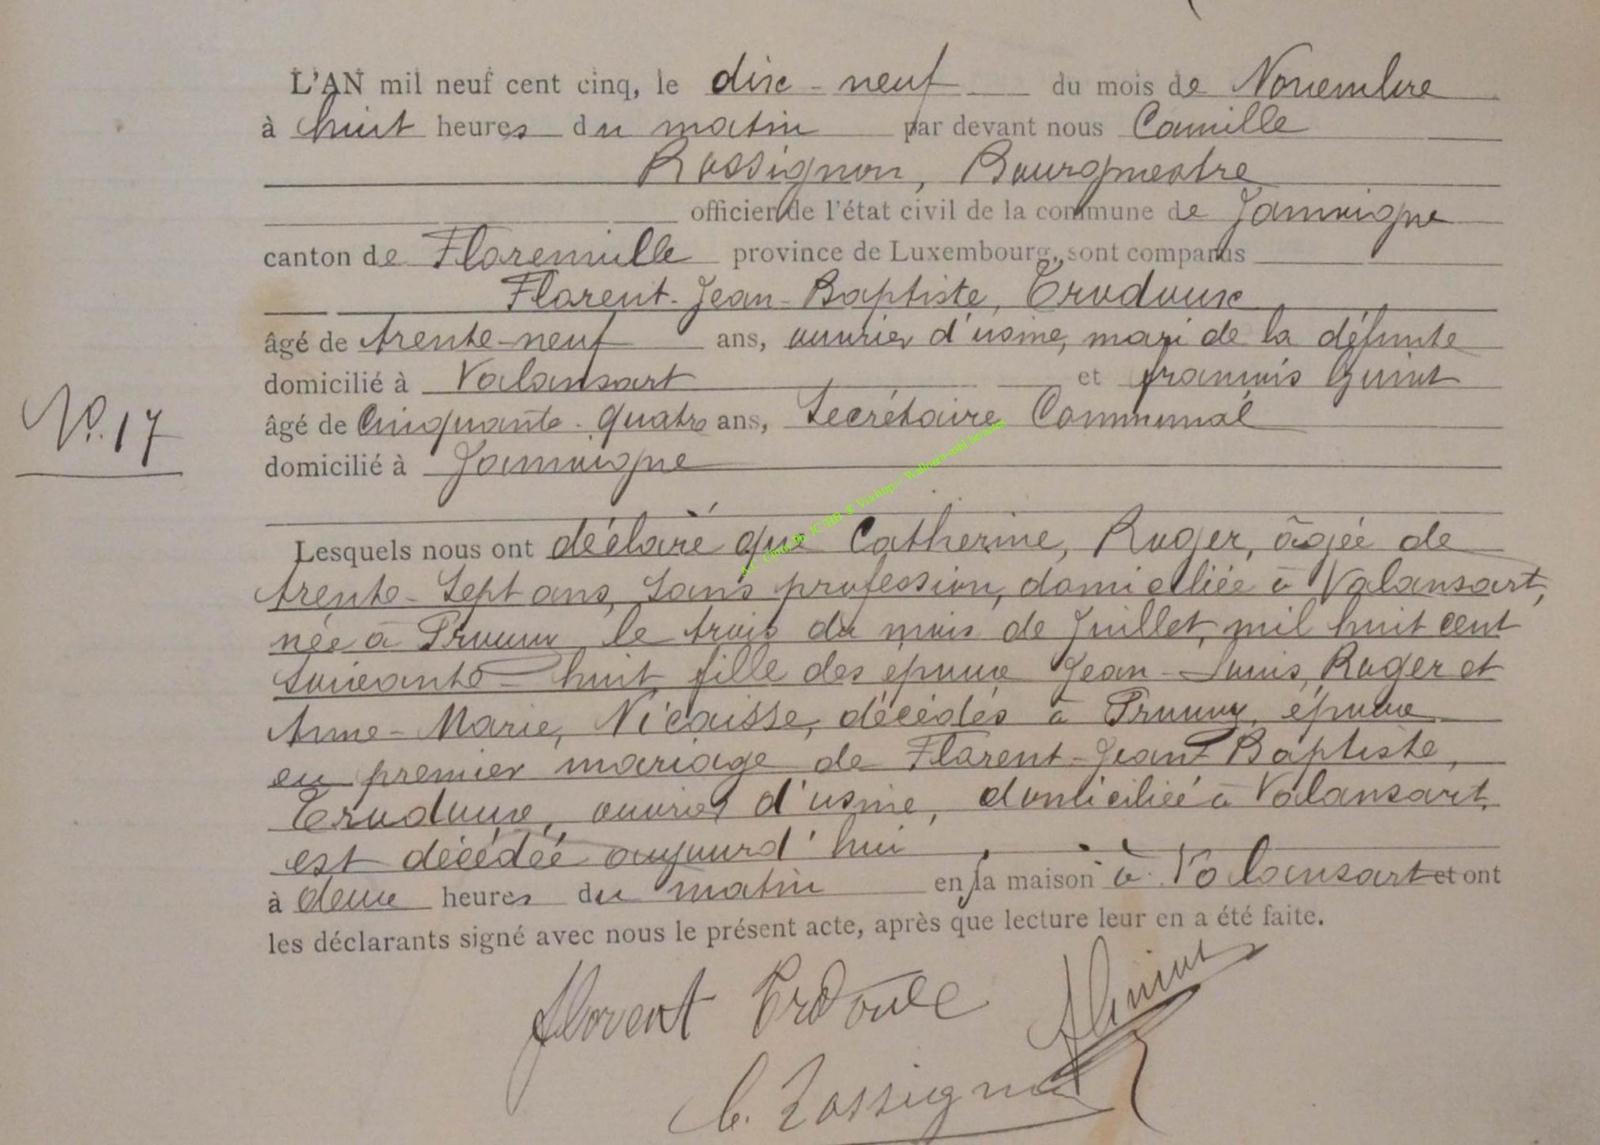 L'AN mil neuf cent cinq, le dix-neuf du mois de Novembre
à huit heures du matin par devant nous Camille
Rossignon, Bourgmestre
officier de l'état civil de la commune de Jamoigne
canton de Florenville province de Luxembourg, sont comparus
Florent-Jean-Baptiste,
âgé de trente-neuf ans, ouvrier d'usine, mari de la défunte
domicilié à Valansart et françois Guiot
âgé de Cinquante-quatre ans, Secrétaire Communal
domicilié à Jamoigne
N°. 17
Lesquels nous ont déclaré que Catherine, Roger, âgée de
trente-Sept ans, Sans profession, domiciliée à Valansart,
née à Prouvy le trois du mois de Juillet, mil huit cent
soixante-huit, fille des époux Jean-Louis, Roger et
Anne-Marie, Nicaisse, décédés à Prouvy, épouse
en premier mariage de Florent-Jean-Baptiste,
ouvrier d'usine, domiciliée à Valansart,
est décédée aujourd'hui
à deux heures du matin en la maison à Valansart et ont
les déclarants signé avec nous le présent acte, après que lecture leur en a été faite.
florent
C. Rossignon